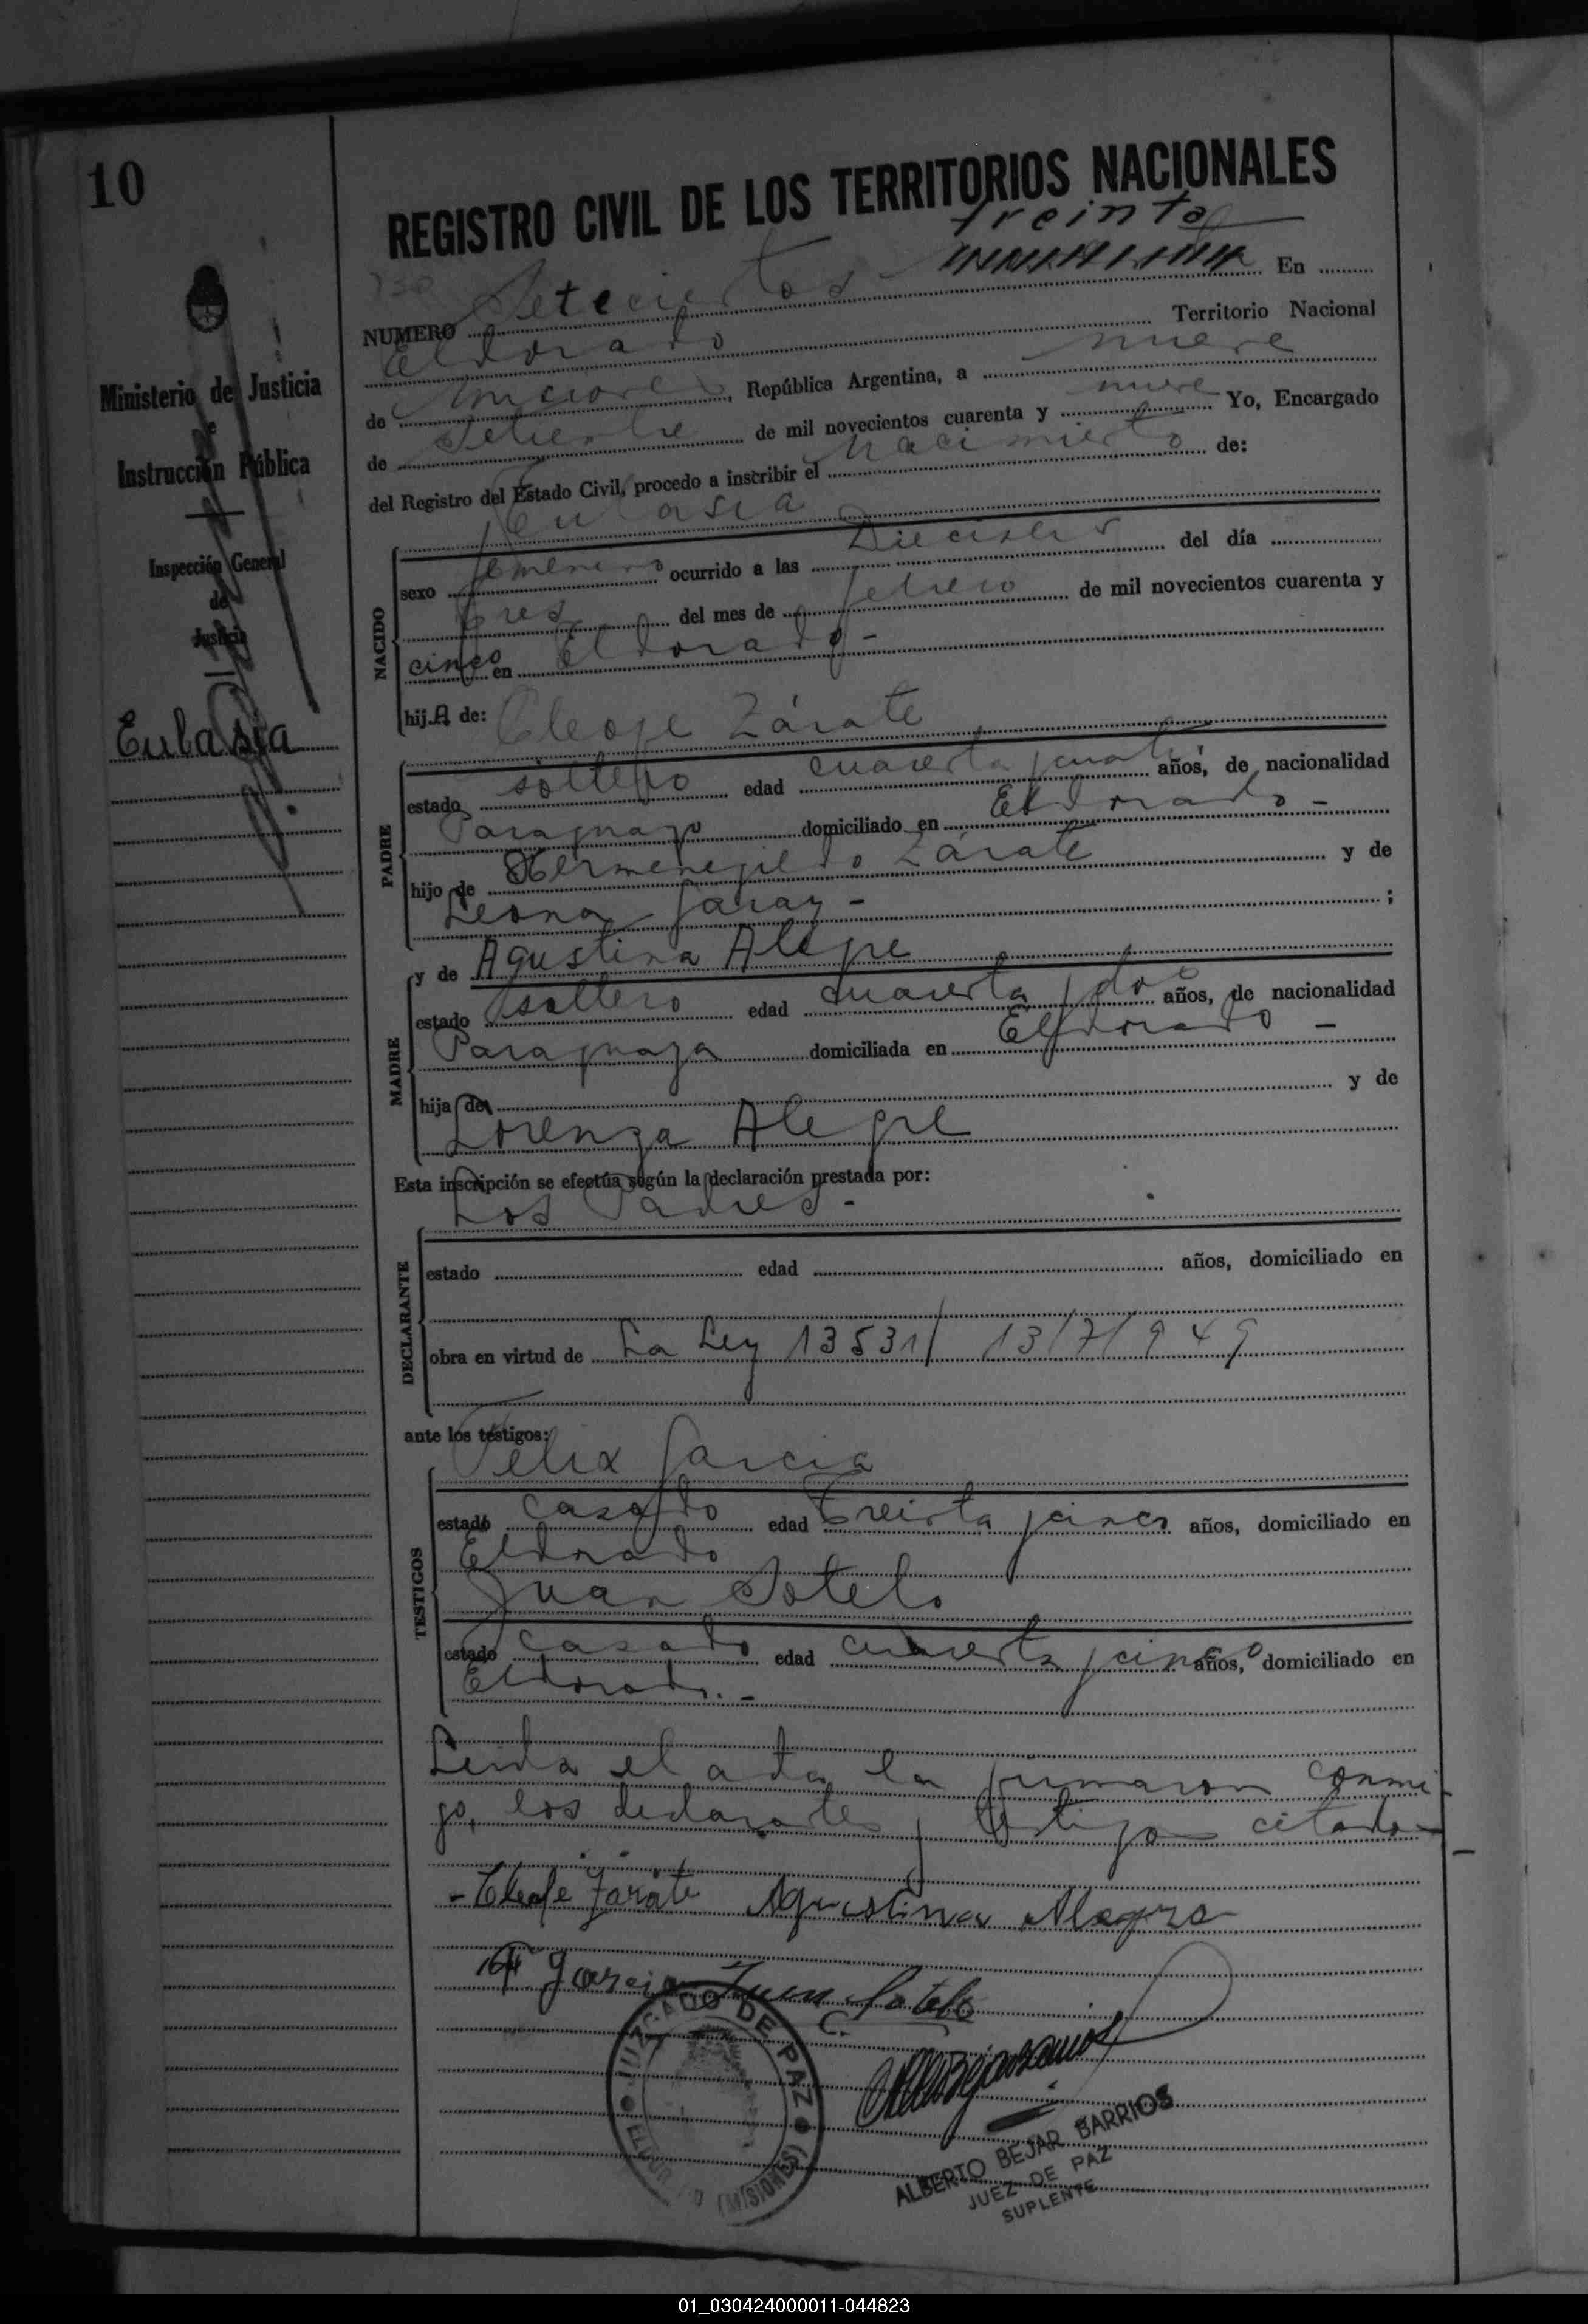 10
REGISTRO CIVIL DE LOS TERRITORIOS NACIONALES
treinta
730
NUMERO Setecientos En
Eldorado Territorio Nacional
de Misiones, República Argentina, a nueve
de Setiembre de mil novecientos cuarenta y nueve Yo, Encargado
del Registro del Estado Civil, procedo a inscribir el nacimiento de:
Eulasia
NACIDO
sexo femenino ocurrido a las Dieciseis del día
tres del mes de febrero de mil novecientos cuarenta y
cinco en Eldorado -
hij.A de: Cleofe Zárate
PADRE
estado soltero edad cuarenta y cuatro años, de nacionalidad
Paraguayo domiciliado en Eldorado -
hijo de Hermenegildo Zárate y de
Leona Garay - ;
y de Agustina Alegre
MADRE
estado soltero edad cuarenta y dos años, de nacionalidad
Paraguaya domiciliada en Eldorado -
hija de y de
Lorenza Alegre
Esta inscripción se efectúa según la declaración prestada por:
Los Padres -
DECLARANTE
estado edad años, domiciliado en
obra en virtud de La Ley 13531/ 13/7/949
ante los testigos:
Felix Garcia
TESTIGOS
estado casado edad treinta y cinco años, domiciliado en
Eldorado
Juan Sotelo
estado casado edad cuarenta y cinco años, domiciliado en
Eldorado. -
Leida el acta, la firmaron conmi-
go, los declarantes y testigos citados -
- Cleofe Zarate Agustina Alegre
Garcia Juan Sotelo
JUZGADO DE PAZ
ELDORADO (MISIONES)
ALBERTO BEJAR BARRIOS
JUEZ DE PAZ
SUPLENTE
Ministerio de Justicia
e
Instrucción Pública
Inspección General
de
Justicia
Eulasia
01_030424000011-044823